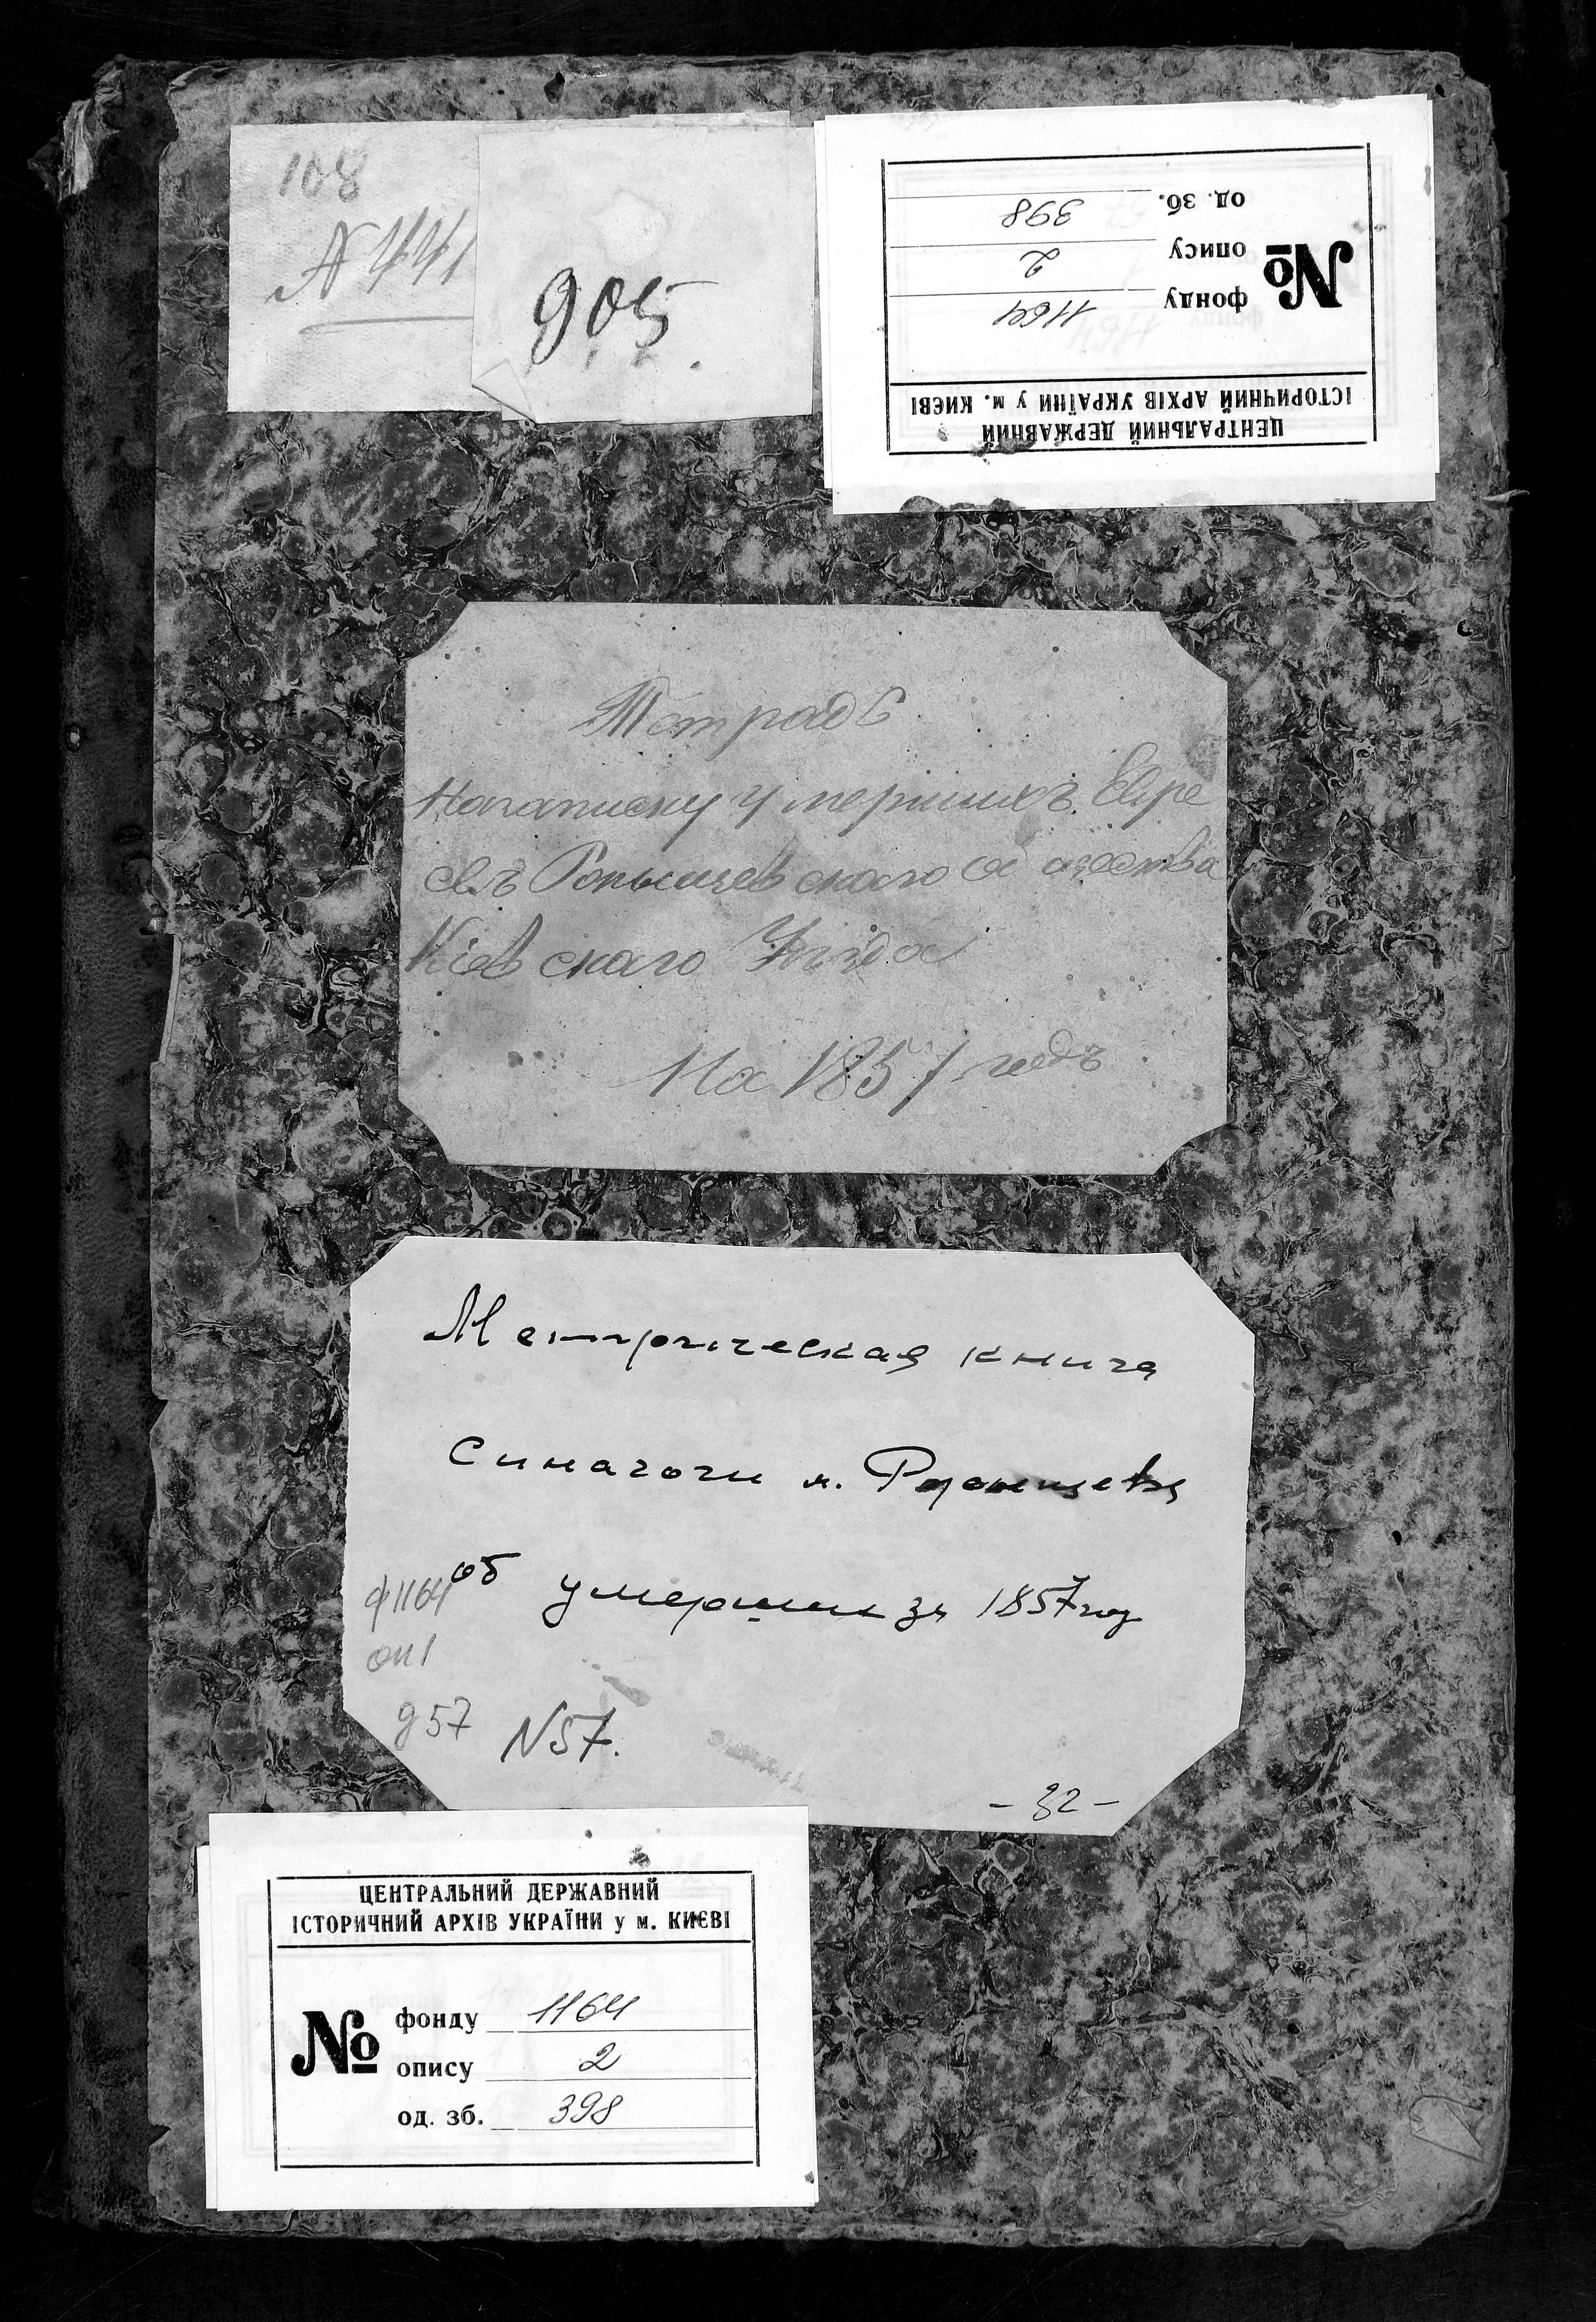 108
N 441
905
ЦЕНТРАЛЬНИЙ ДЕРЖАВНИЙ
ІСТОРИЧНИЙ АРХІВ УКРАЇНИ у м. КИЄВІ
№
фонду 1164
опису 2
од. зб. 398
Тетрадь
На записку умершихъ Евре
евъ Ропищевскаго общества
Кіевскаго Уезда
На 1857 годъ
Метрическая книга
синагоги м.
об умерших за 1857 год
ф 1164
оп 1
д 57
N 57.
- 32 -
ЦЕНТРАЛЬНИЙ ДЕРЖАВНИЙ
ІСТОРИЧНИЙ АРХІВ УКРАЇНИ у м. КИЄВІ
№
фонду 1164
опису 2
од. зб. 398